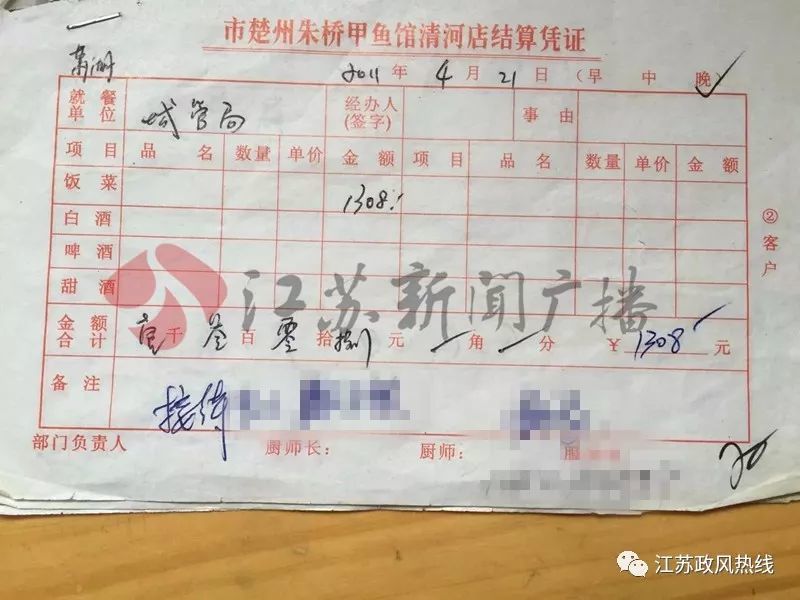 市楚州朱桥甲鱼馆清河店结算凭证
2011年 4月 21日（早 中 晚）
就餐单位 城管局 经办人(签字) 事由
项目 品名 数量 单价 金额 项目 品名 数量 单价 金额
饭菜 1308
白酒
啤酒
甜酒
②客户
江苏新闻广播
金额合计 壹千叁百零拾捌元 角 分 ¥1308元
备注 接待
部门负责人 厨师长： 厨师：
20
江苏政风热线